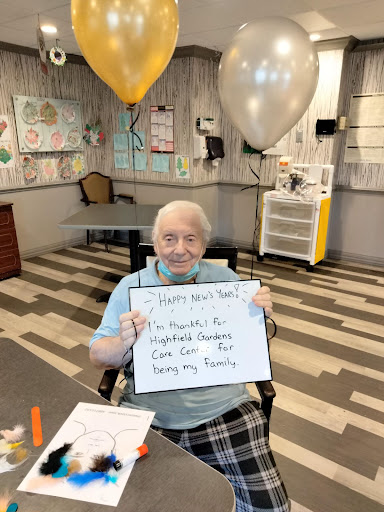 Happy New's Years!
I'm thankful for
Highfield Gardens
Care Center for
being my family.